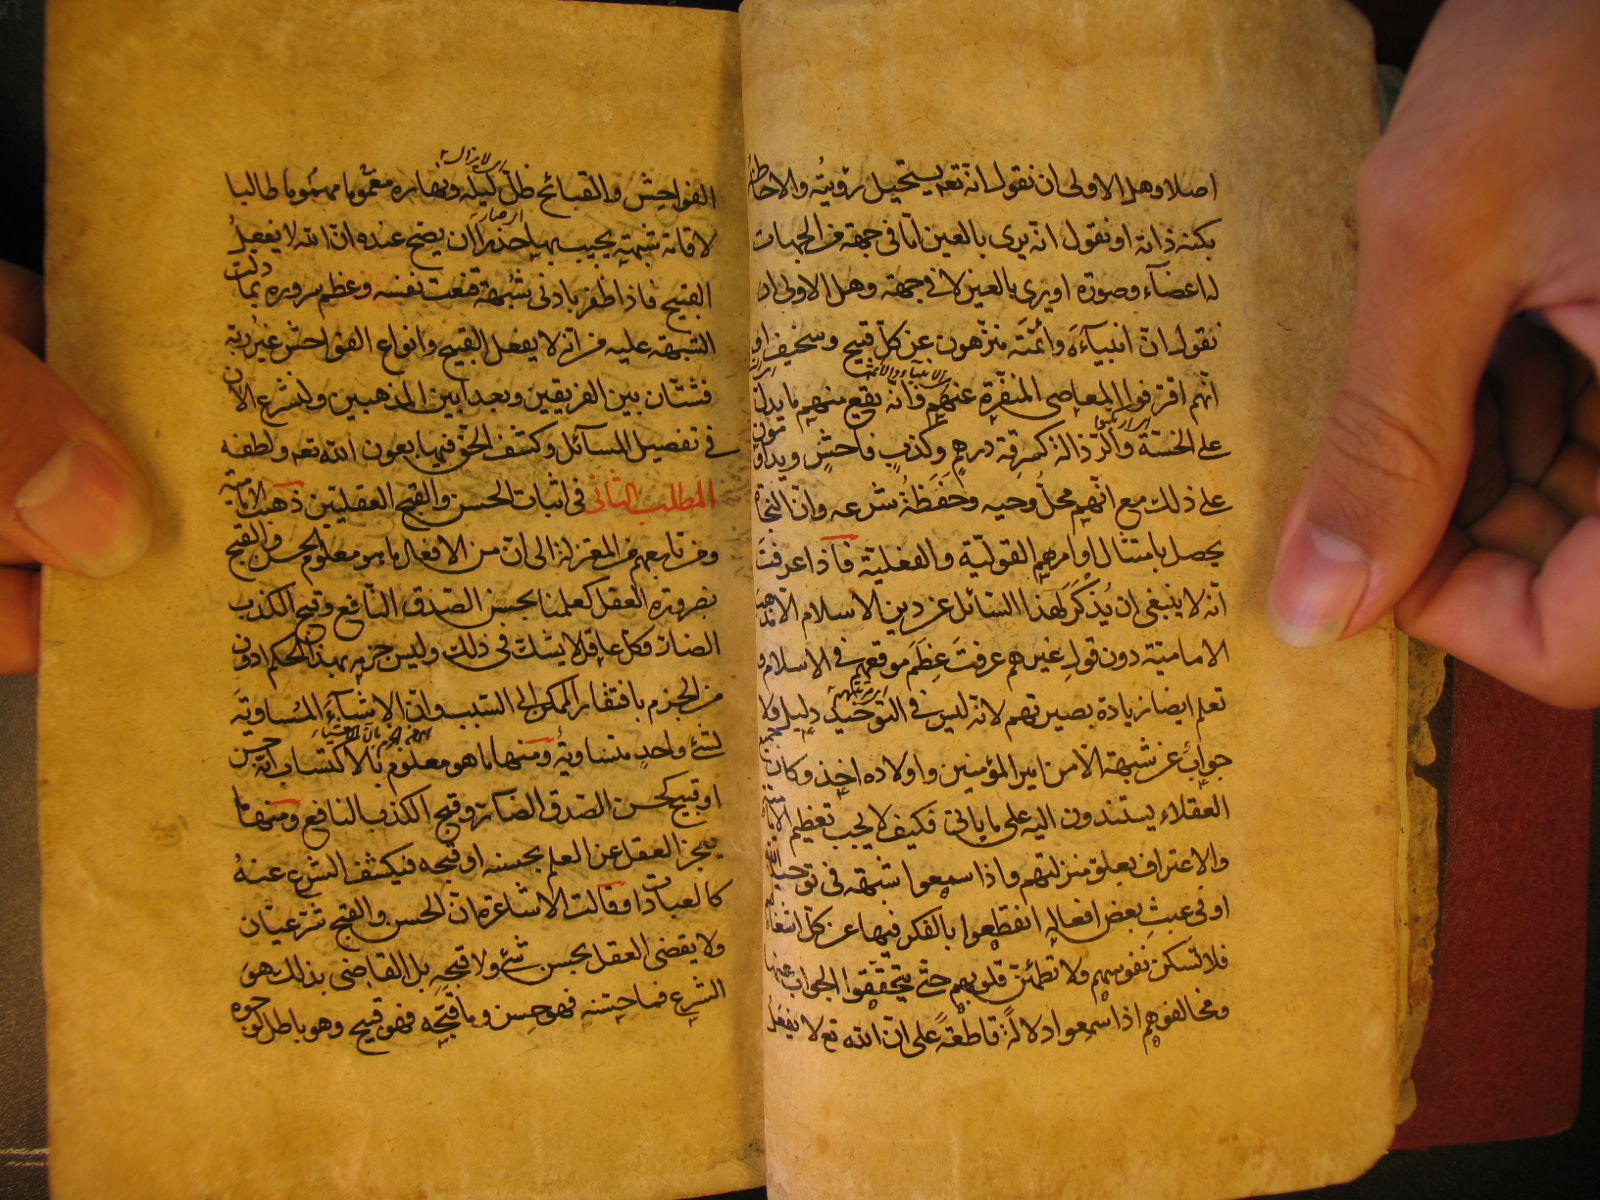 اصلا وهل الاولى ان نقول انه تعه يستحيل رؤيته والاحاطة
بكنه ذاته او نقول انه يرى بالعين اما في جهة من الجهات
له اعضآء وصورة او يرى بالعين لا في جهة وهل الاولى ان
نقول ان انبيآءه وائمته منزهون عن كل قبيح وسخيف او
انهم اقترفوا المعاصى المنفرة عنهم وانه يقع منهم ما يدل
على الخسة والرذالة كسرقة درهم وكذب فاحش ويداومون
على ذلك مع انهم محل وحيه وحفظة شرعه وان النجاة
يحصل بامتثال اوامرهم القولية والفعلية فاذا عرفت
انه لا ينبغى ان يذكر لهذا السائل عن دين الاسلام الا مذهب
الامامية دون قول غيرهم عرفت عظم موقعهم في الاسلام و
تعلم ايضا زيادة بصيرتهم لانه ليس في التوحيد دليل ولا
جواب عن شبهة الا من امير المؤمنين واولاده اخذ وكان
العقلاء يستندون اليه على ما ياتى فكيف لا يجب تعظيم
والاعتراف بعلو منزلتهم واذا سمعوا شبهة فى توحيد
او فى عبث بعض افعاله انقطعوا بالفكر فيها عن كل اشغالهم
فلا تسكن نفوسهم ولا تطمئن قلوبهم حتى يتحققوا الجواب عنها
ومخالفوهم اذا سمعوا دلالة قاطعة على ان الله تع لا يفعل
اى لا يزال
الفواحش والقبائح ظل ليله ونهاره مغموما مهموما طالبا
لاقامة شبهة يجيب بها حذرا ان يصح عنده ان الله لا يفعل
القبيح فاذا ظفر بادنى شبهة قنعت نفسه وعظم سروره بما دلت
الشبهة عليه من انه لا يفعل القبيح وانواع الفواحش غير ربه
فشتان بين الفريقين وبعدا بين المذهبين ولنشرع الان
في تفصيل المسائل وكشف الحق فيها بعون الله تعه ولطفه
المطلب الثانى فى اثبات الحسن والقبح العقليين ذهبت الامامية
ومن تابعهم من المعتزلة الى ان من الافعال ما هو معلوم الحسن والقبح
بضرورة العقل كعلمنا بحسن الصدق النافع وقبح الكذب
الضار وكل عاقل لا يشك فى ذلك وليس جزمه بهذا الحكم ادون
من الجزم بافتقار الممكن الى السبب وان الاشيآء المساوية
لشئ واحد متساوية ومنها ما هو معلوم بالاكتساب انه حسن
او قبيح كحسن الصدق الضار وقبح الكذب النافع ومنها ما
يعجز العقل عن العلم بحسنه او قبحه فيكشف الشرع عنه
كالعبادات وقالت الاشاعرة ان الحسن والقبح شرعيان
ولا يقضى العقل بحسن شئ ولا قبحه بل القاضى بذلك هو
الشرع فما حسنه فهو حسن وما قبحه فهو قبيح وهو باطل لوجوه